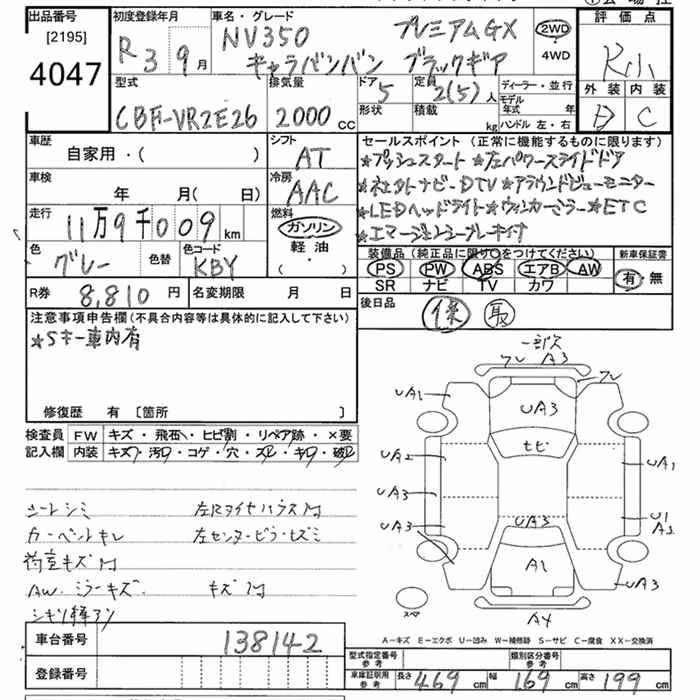 出品番号 初度登録年月 車名・グレード 評価点
[2195] 4047
R3 9月 NV350 プレミアムGX 2WD
キャラバンバン ブラックギア 4WD
型式 排気量 ドア 定員 ディーラー・並行 外装 内装
CBF-VR2E26 2000cc 5 2(5)人 モデル年式 年 C
形状 積載 kg ハンドル 左・右
車歴 シフト セールスポイント (正常に機能するものに限ります)
自家用・( ) AT ★プッシュスタート ★左パワースライドドア
車検 冷房
年 月( 日) AAC ナビ・DTV ★アラウンドビューモニター
走行 燃料 ★LEDヘッドライト ★ウィンカーミラー ★ETC
11万9千009km ガソリン ★エマージェンシーブレーキ付
色 色替 色コード 軽油
グレー KBY ( ・ )
装備品 (純正品に限り○をつけてください) 新車保証書
PS PW ABS エアB AW 有・無
SR ナビ TV カワ
R券 8,810円 名変期限 月 日 後日品
保 取
注意事項申告欄(不具合内容等は具体的に記入して下さい)
★Sキー車内有
修復歴 有 [箇所 ]
検査員 FW キズ・飛石・ヒビ割・リペア跡・×要
記入欄 内装 キズ・汚・コゲ・穴・スレ・キレ・破レ
一部欠
フレ A3
フレ
UA1
UA3
ヒビ
UA2
UA1
UA3
UA3
UA3
U1
A2
A1
UA3
A4
スペ
シートシミ
カーペットキレ 左センターピラーキズミ
荷室キズ
AW・ミラーキズ. キズ
A−キズ E−エクボ U−凹み W−補修跡 S−サビ C−腐食 XX−交換済
車台番号 138142
登録番号
型式指定番号 参考 類別区分番号 参考
車庫証明用 参考 長さ 469cm 幅 169cm 高さ 199cm